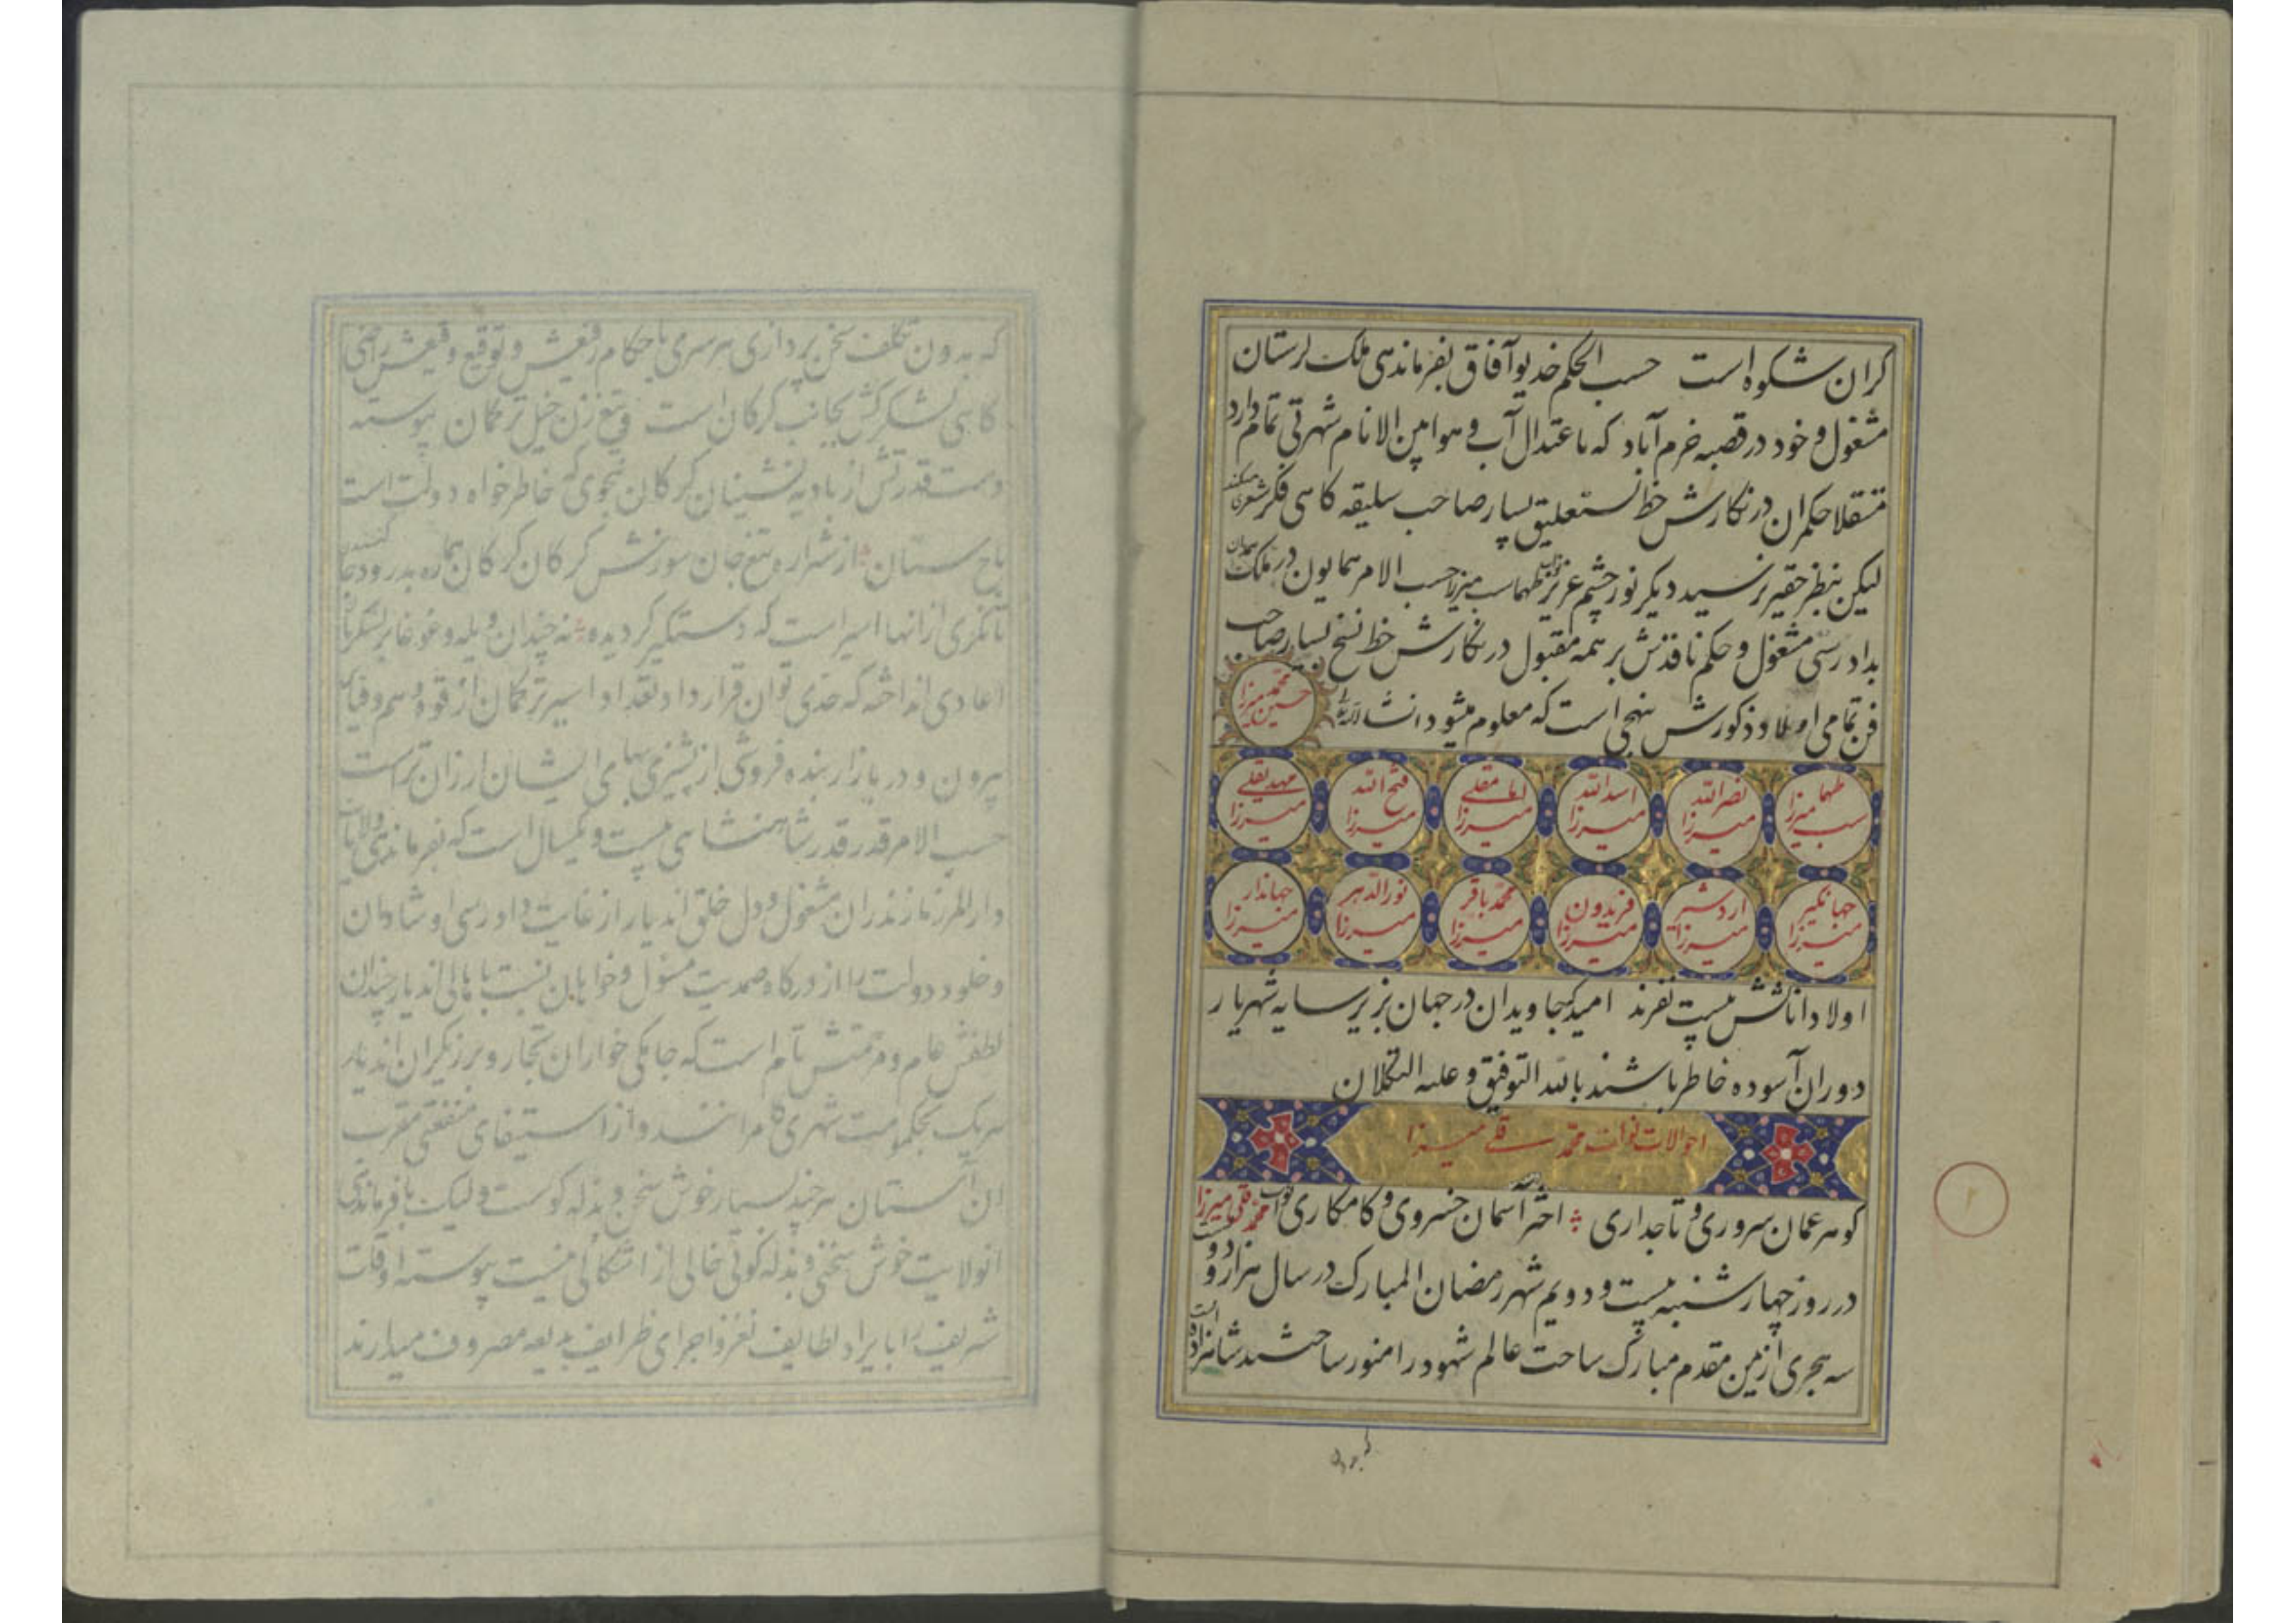 کران شکوه است حسب الحکم خدیو آفاق بفرماندهی ملک لرستان
مشغول و خود در قصبه خرم آباد که باعتدال آب و هوا بین الانام شهرتی تمام دارد
مستقلا حکمران در نکارش خط نستعلیق بسیار صاحب سلیقه کاهی فکر شعری میکند
لیکن بنظر حقیر نرسید دیکر نور چشم عزیز نواب طهماسب میرزا حسب الامر همایون در ملک همدان
بدادرسی مشغول و حکم نافذش بر همه مقبول در نکارش خط نسخ بسیار صاحب
فن تمامی اولاد ذکورش بنهجی است که معلوم میشود انشاءالله
محمد حسین میرزا
طهماسب میرزا
نصرالله میرزا
اسدالله میرزا
امامقلی میرزا
فتح الله میرزا
مهدیقلی میرزا
جهانکیر میرزا
اردشیر میرزا
فریدون میرزا
محمد باقر میرزا
نورالدهر میرزا
جهاندار میرزا
اولاد اناثش بیست نفرند امید که جاویدان در جهان بزیر سایه شهریار
دوران آسوده خاطر باشند بالله التوفیق و علیه التکلان
احوالات نواب محمد قلی میرزا
کوهر عمان سروری و تاجداری اختر آسمان خسروی و کامکاری نواب محمد قلی میرزا
در روز چهارشنبه بیست و دویم شهر رمضان المبارک در سال هزار و دویست و
سه هجری از یمن مقدم مبارک ساحت عالم شهود را منور ساخت شاهزاده است
که بدون
که بدون تکلف سخن پردازی هر سری باحکام رفیعش و توقیع وقیعش راضی
کاهی لشکرکش بجانب کرکان است و تیغ زن خیل ترکمان پیوسته
دست قدرتش از بادیه نشینان کرکان بنحوی که خاطرخواه دولت است
باج ستان از شراره تیغ جان سوزش کرکان کرکان هماره بدرود جان کنند
اعادی انداخته که حدی توان قرار داد و تعداد اسیر ترکمان از قوه وهم و قیاس
بیرون و در بازار بنده فروشی از پشیزی بهای ایشان ارزان تر است
حسب الامر قدر قدر شاهنشاهی بیست و یکسال است که بفرماندهی ولایات
دارالمرز مازندران مشغول و دل خلق اندیار از غایت دادرسی او شادان
و خلود دولت را از درکاه صمدیت مسئول و خواهان نسبت باهالی اندیار چندان
لطفش عام و مرحمتش تام است که جامکی خواران تجار و برزیکران اندیار
هر یک بحکومت شهری کامرانند و از استیفای منفعتی مقرب
آن آستان هر چند بسیار خوش سخن و بذله کوست ولیک با فرماندهی
انولایت خوش سخنی و بذله کوئی خالی از اشکالی نیست پیوسته اوقات
شریف را بایراد لطایف نغز و اجرای ظرایف بدیعه مصروف میدارند